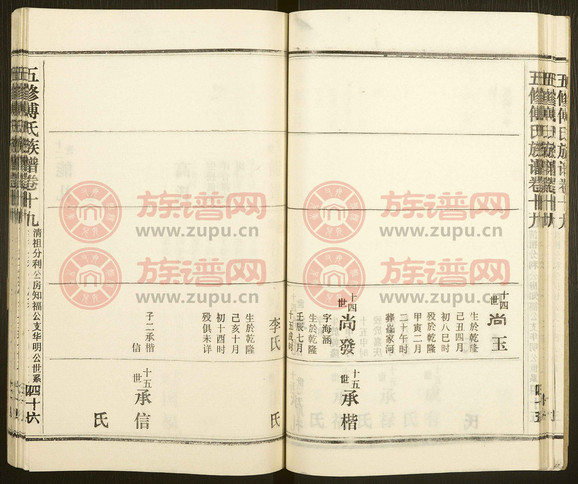 五修傅氏族譜卷十九
十四世 尚玉
生於乾隆
己丑四月
初八巳時
殁於乾隆
甲寅二月
二十午時
葬崔家河
十四世 尚發
字海涵
生於乾隆
壬辰七月
十五世 承楷
李氏
生於乾隆
己亥十月
初十酉時
殁俱未詳
子二承楷
信
氏
十五世 承信
氏
五修傅氏族譜卷十九
清祖分利公房知福公支华明公世系
四十六
族谱网
www.zupu.cn
族谱网
www.zupu.cn
族谱网
www.zupu.cn
族谱网
www.zupu.cn